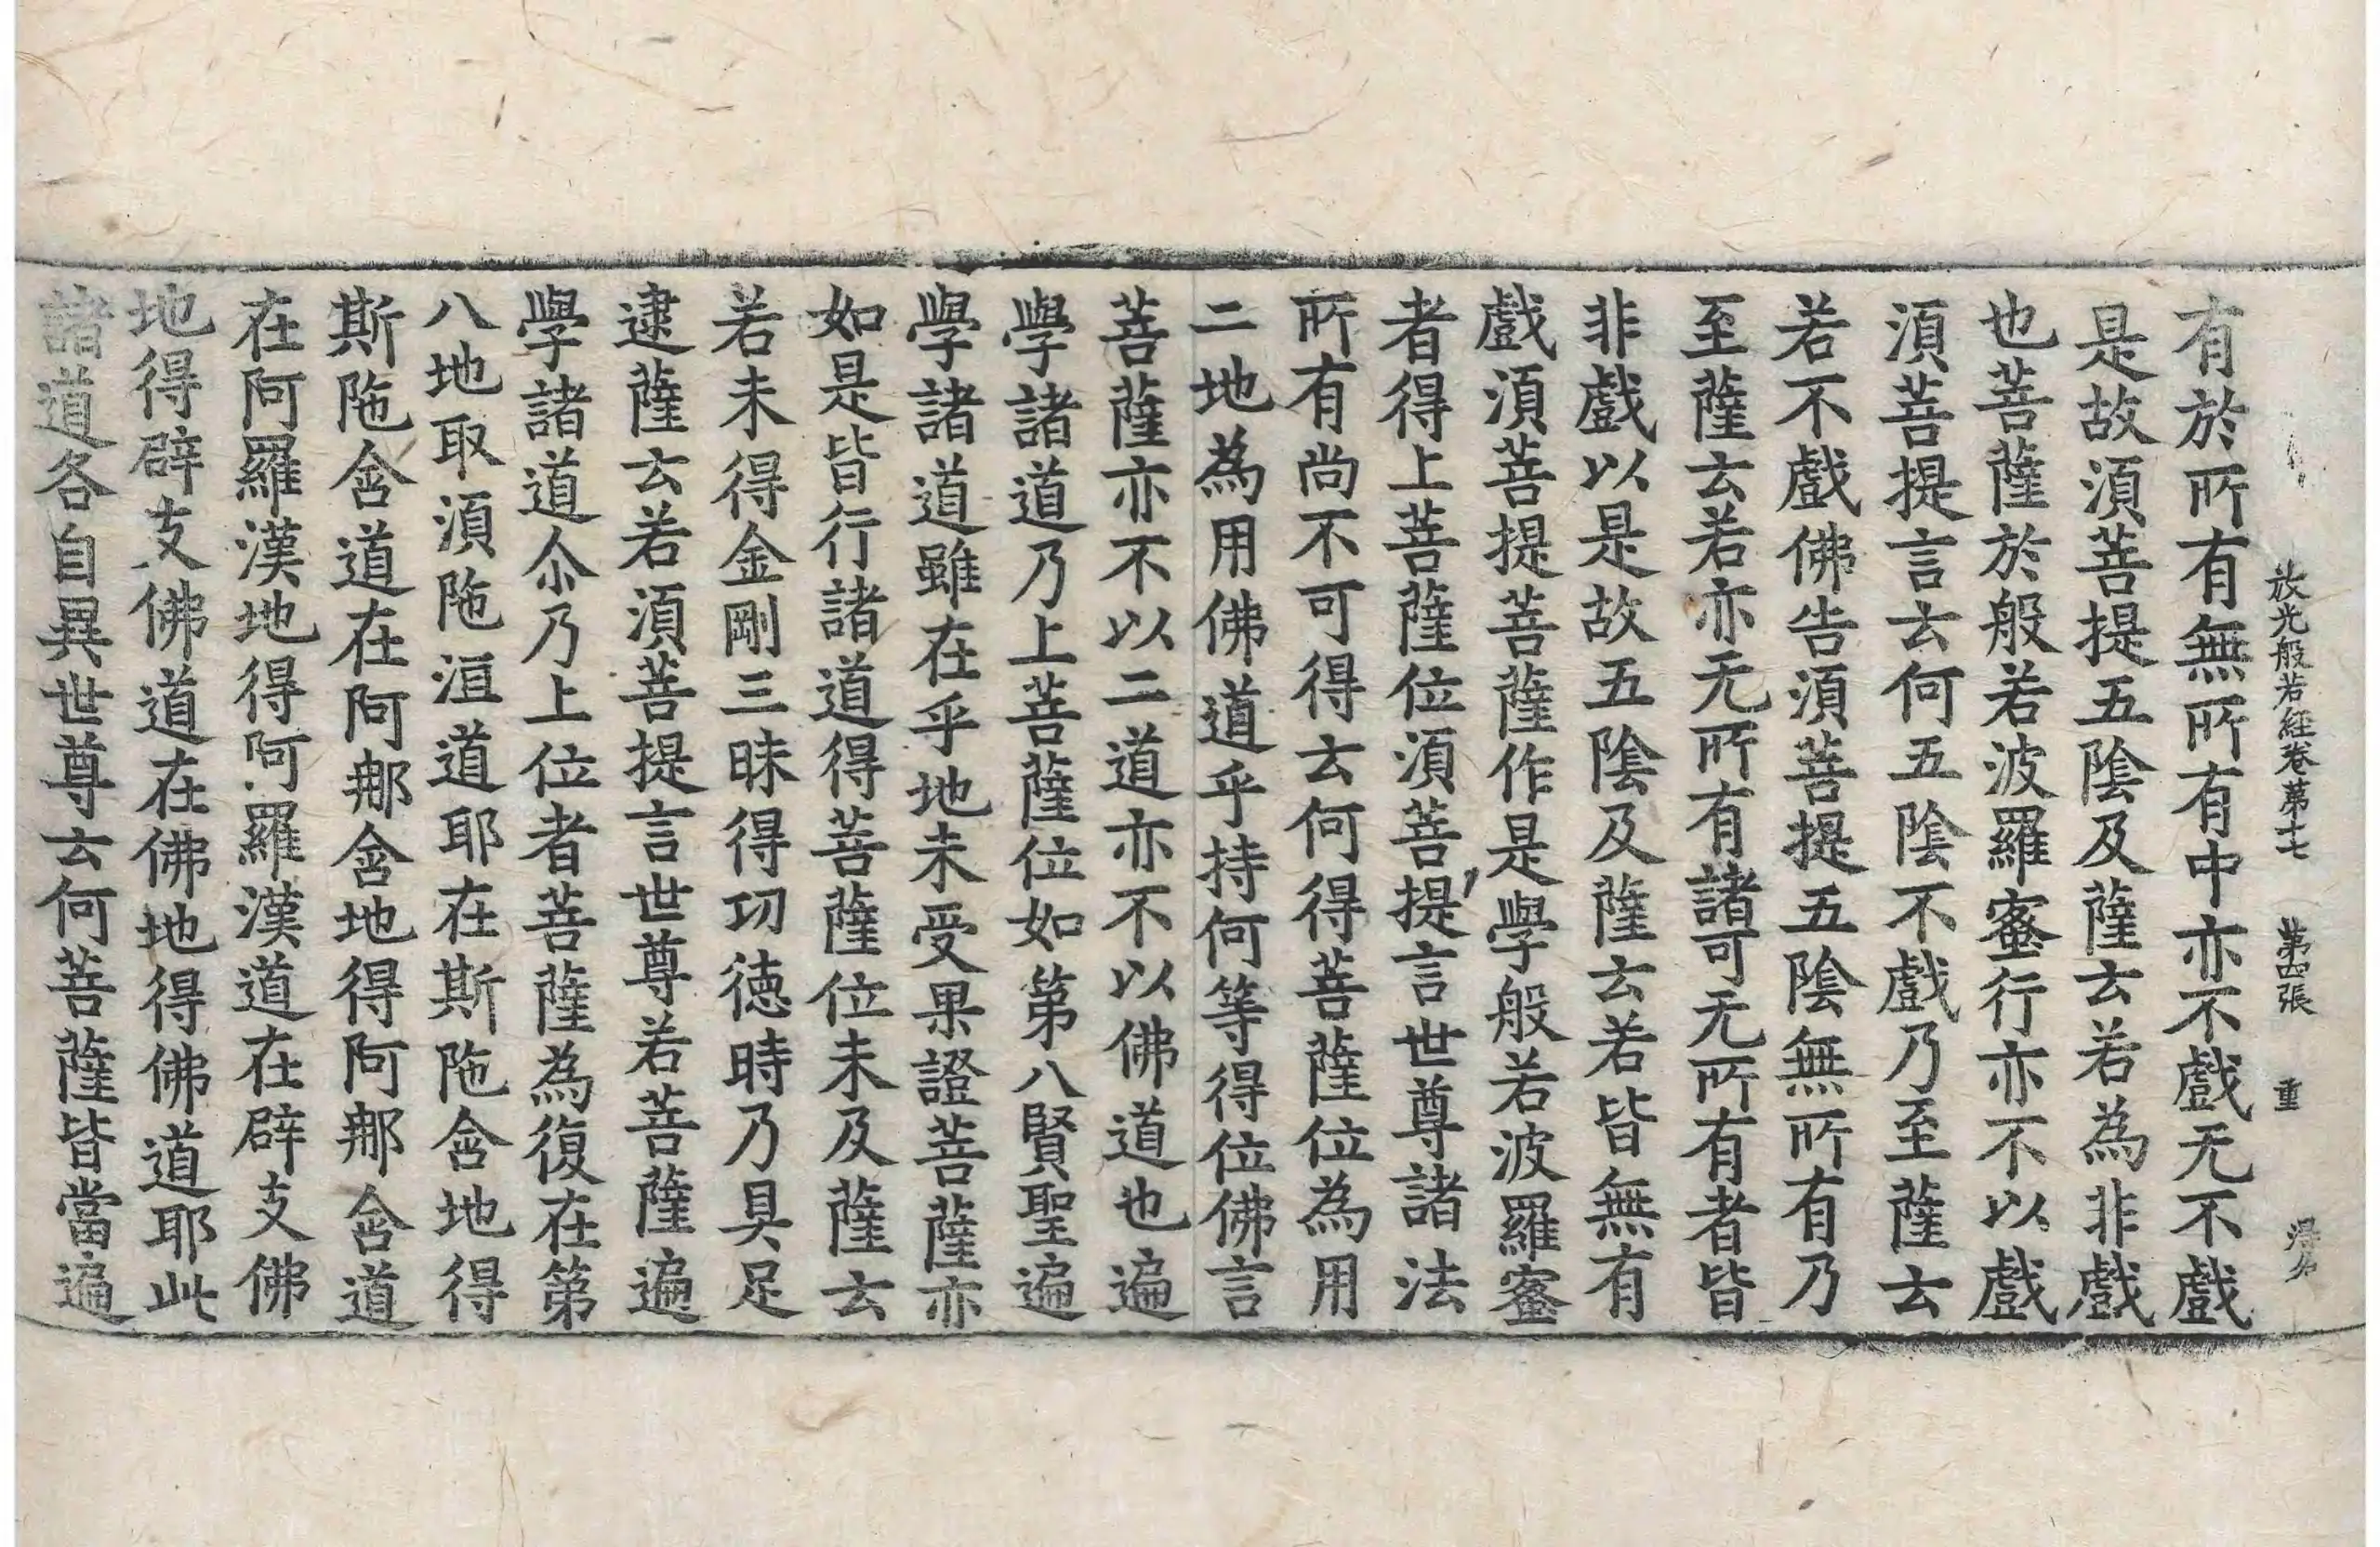 放光般若經卷第十七 第四張 重
有於所有無所有中亦不戲无不戲
是故須菩提五陰及薩云若為非戲
也菩薩於般若波羅蜜行亦不以戲
須菩提言云何五陰不戲乃至薩云
若不戲佛告須菩提五陰無所有乃
至薩云若亦无所有諸可无所有者皆
非戲以是故五陰及薩云若皆無有
戲須菩提菩薩作是學般若波羅蜜
者得上菩薩位須菩提言世尊諸法
所有尚不可得云何得菩薩位為用
二地為用佛道乎持何等得位佛言
菩薩亦不以二道亦不以佛道也遍
學諸道乃上菩薩位如第八賢聖遍
學諸道雖在乎地未受果證菩薩亦
如是皆行諸道得菩薩位未及薩云
若未得金剛三昧得功徳時乃具足
逮薩云若須菩提言世尊若菩薩遍
學諸道尒乃上位者菩薩為復在第
八地取須陁洹道耶在斯陁含地得
斯陁含道在阿那含地得阿那含道
在阿羅漢地得阿羅漢道在辟支佛
地得辟支佛道在佛地得佛道耶此
諸道各自異世尊云何菩薩皆當遍